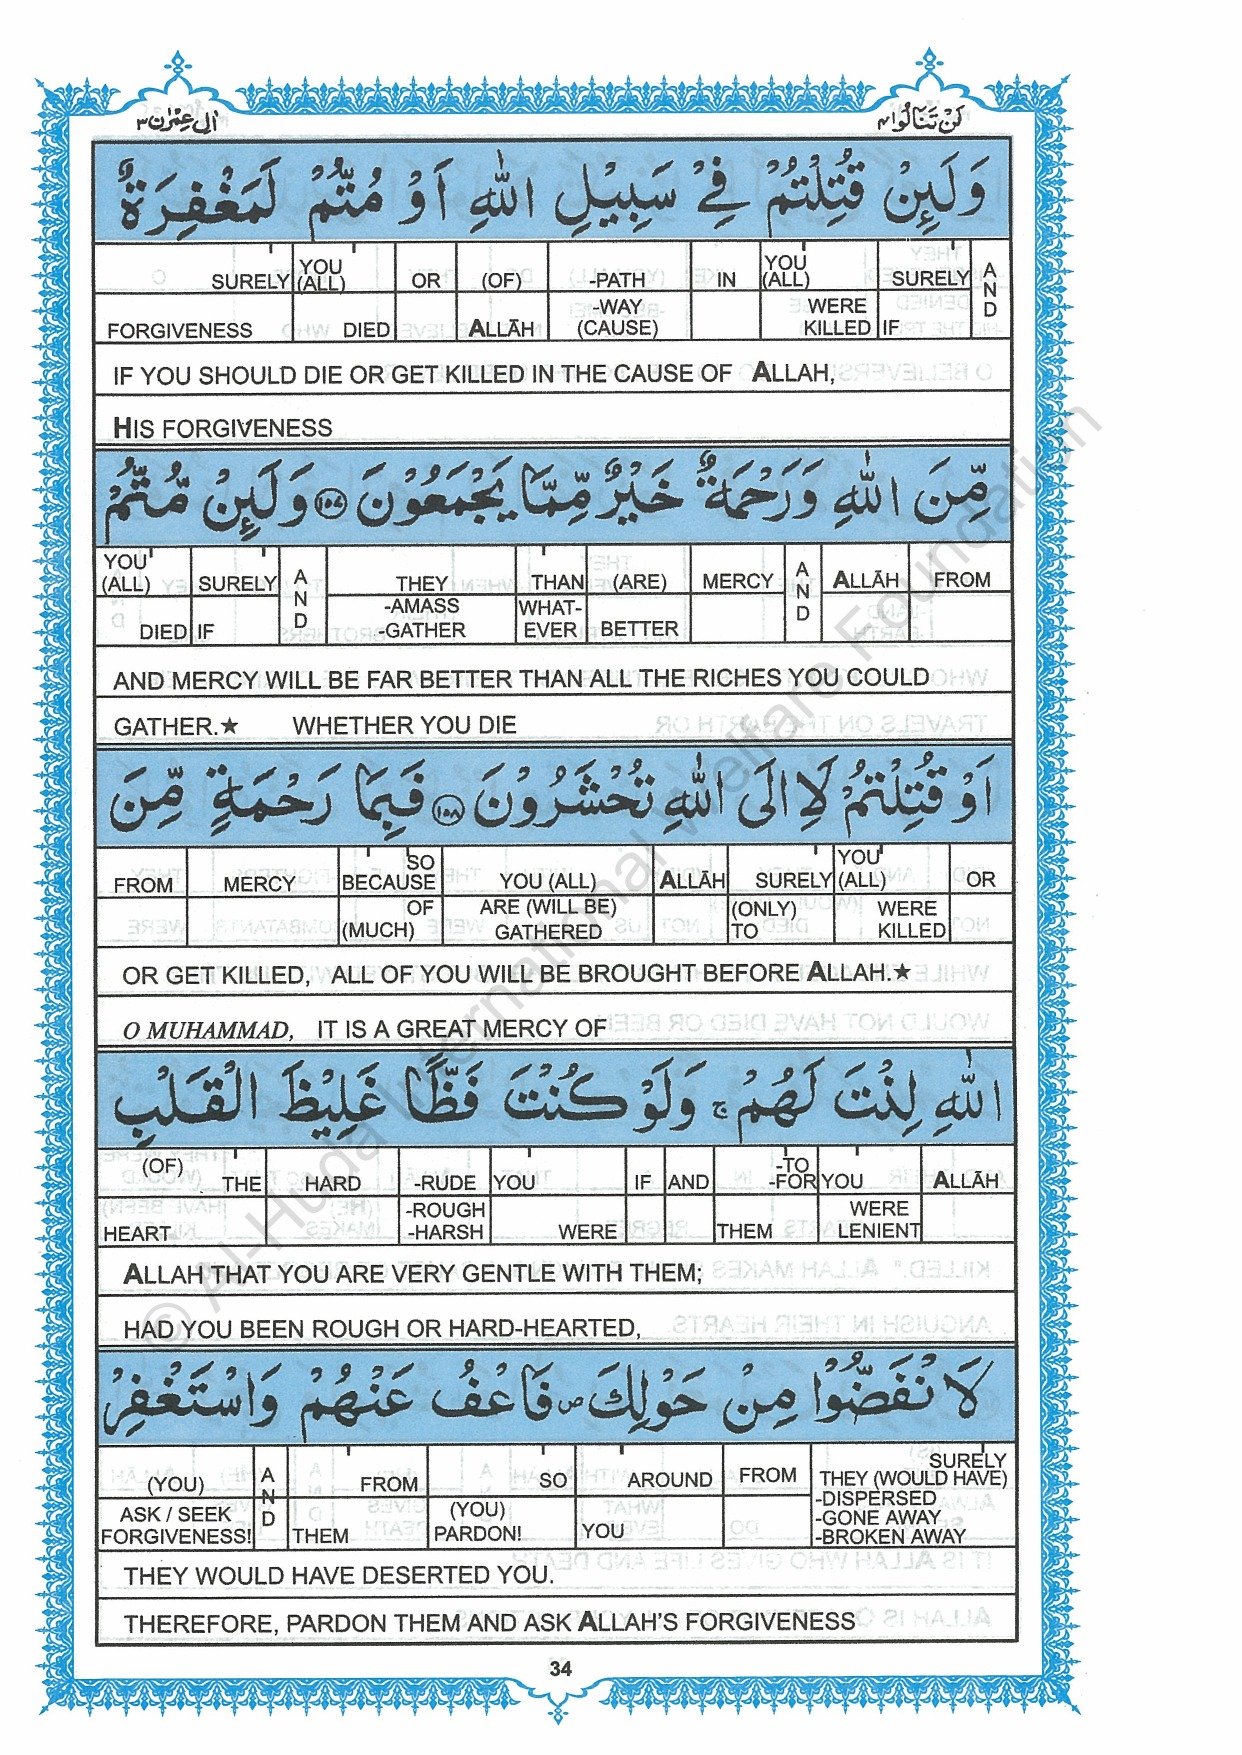 اٰل عِمْرٰن ٣
لَنْ تَنَالُوا ٤
وَلَئِنْ قُتِلْتُمْ فِیْ سَبِیْلِ اللّٰهِ اَوْ مُتُّمْ لَمَغْفِرَةٌ
SURELY YOU (ALL) OR (OF) -PATH IN YOU (ALL) SURELY AND
FORGIVENESS DIED ALLĀH -WAY (CAUSE) WERE KILLED IF
IF YOU SHOULD DIE OR GET KILLED IN THE CAUSE OF ALLAH,
HIS FORGIVENESS
مِّنَ اللّٰهِ وَرَحْمَةٌ خَیْرٌ مِّمَّا یَجْمَعُوْنَ ۝١٥٧ وَلَئِنْ مُّتُّمْ
YOU (ALL) SURELY AND THEY THAN (ARE) MERCY AND ALLĀH FROM
DIED IF -AMASS -GATHER WHAT-EVER BETTER
AND MERCY WILL BE FAR BETTER THAN ALL THE RICHES YOU COULD
GATHER.★ WHETHER YOU DIE
اَوْ قُتِلْتُمْ لَاۡاِلَی اللّٰهِ تُحْشَرُوْنَ ۝١٥٨ فَبِمَا رَحْمَةٍ مِّنَ
FROM MERCY SO BECAUSE YOU (ALL) ALLĀH SURELY YOU (ALL) OR
OF (MUCH) ARE (WILL BE) GATHERED (ONLY) TO WERE KILLED
OR GET KILLED, ALL OF YOU WILL BE BROUGHT BEFORE ALLAH.★
O MUHAMMAD, IT IS A GREAT MERCY OF
اللّٰهِ لِنْتَ لَهُمْ ۚ وَلَوْ كُنْتَ فَظًّا غَلِیْظَ الْقَلْبِ
(OF) THE HARD -RUDE YOU IF AND -TO -FOR YOU ALLĀH
HEART -ROUGH -HARSH WERE THEM WERE LENIENT
ALLAH THAT YOU ARE VERY GENTLE WITH THEM;
HAD YOU BEEN ROUGH OR HARD-HEARTED,
لَا نْفَضُّوْا مِنْ حَوْلِكَ ۖ فَاعْفُ عَنْهُمْ وَاسْتَغْفِرْ
(YOU) AND FROM SO AROUND FROM SURELY THEY (WOULD HAVE)
ASK / SEEK FORGIVENESS! THEM (YOU) PARDON! YOU -DISPERSED -GONE AWAY -BROKEN AWAY
THEY WOULD HAVE DESERTED YOU.
THEREFORE, PARDON THEM AND ASK ALLAH'S FORGIVENESS
34
© Al-Huda International Welfare Foundation